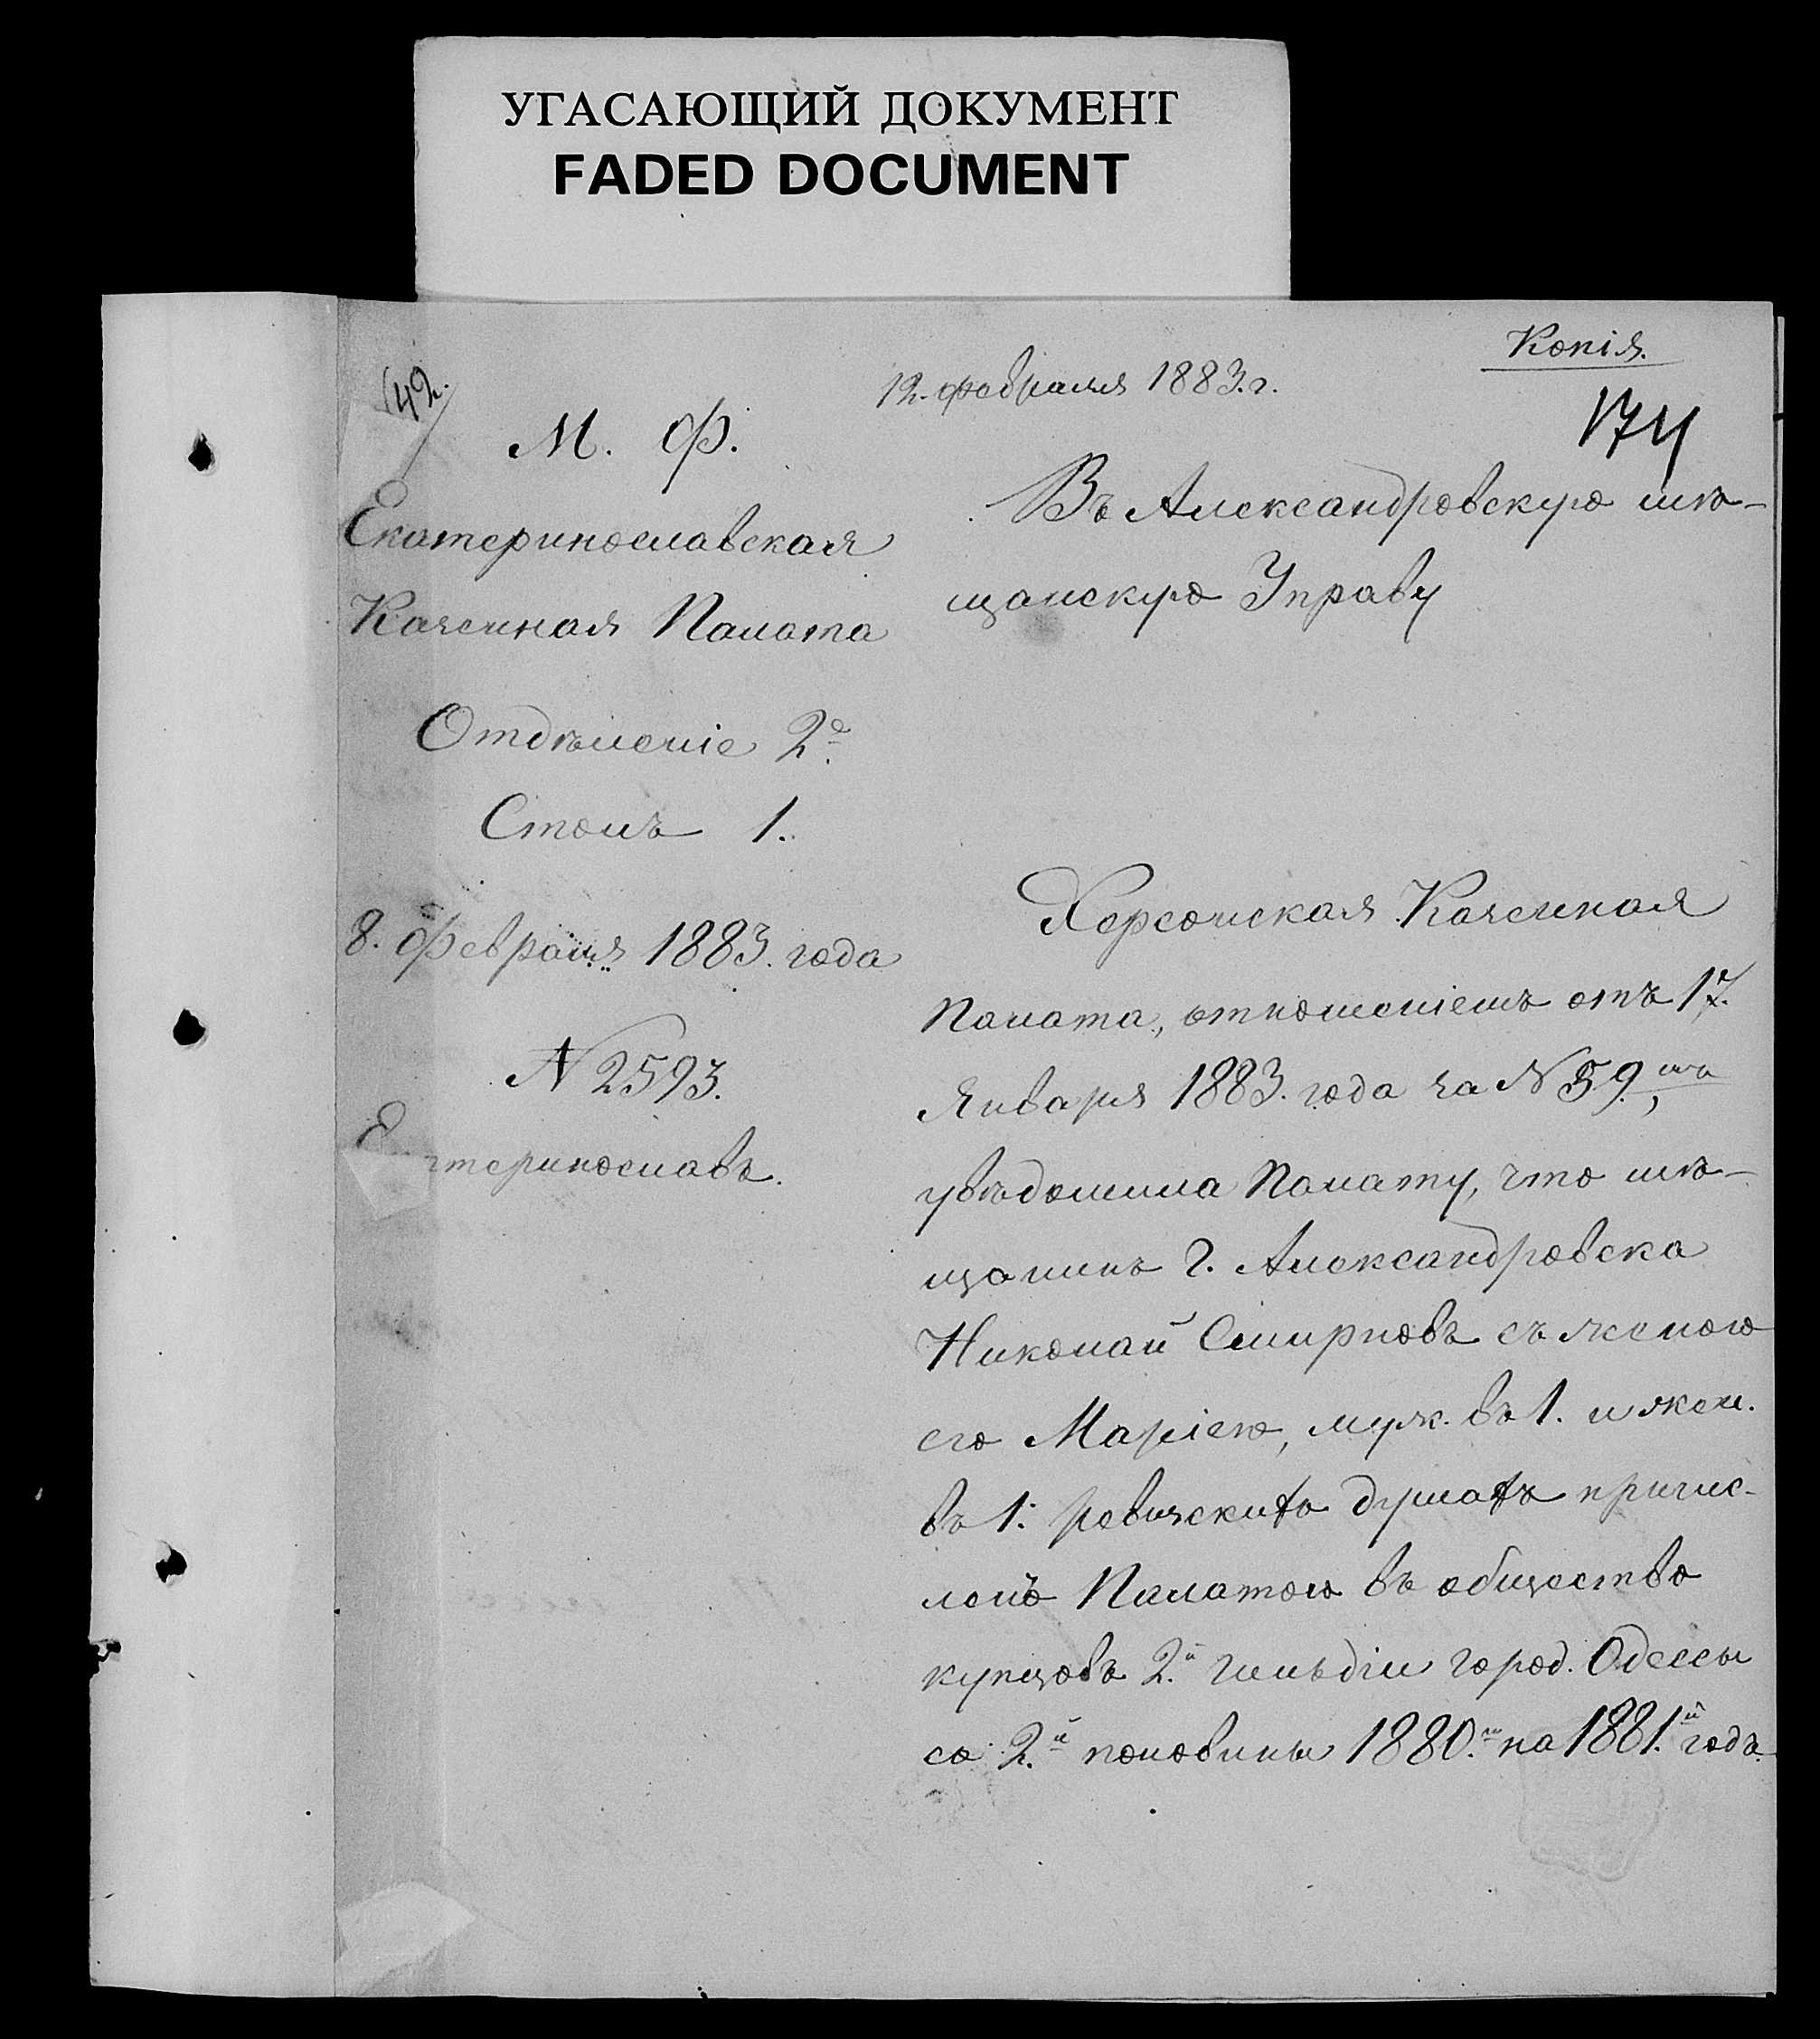 УГАСАЮЩИЙ ДОКУМЕНТ
FADED DOCUMENT
Копія.
12. февраля 1883. г.
174
142.
М. Ф.
Екатеринославская
Казенная Палата
Отдѣленіе 2е
Столъ 1.
8. Февраля 1883. года
N 2593.
Екатеринославъ.
Въ Александровскую мѣ-
щанскую Управу
Херсонская Казенная
Палата, отношеніемъ отъ 17.
Января 1883. года за N 59.мъ,
увѣдомила Палату, что мѣ-
щанинъ г. Александровска
Николай Смирновъ съ женою
его Маріею, муж. въ 1. и жен.
въ 1. ревизскихъ душахъ причис-
ленъ Палатою въ общество
купцовъ 2.й гильдіи город. Одессы
со 2.й половины 1880.г на 1881.й годъ